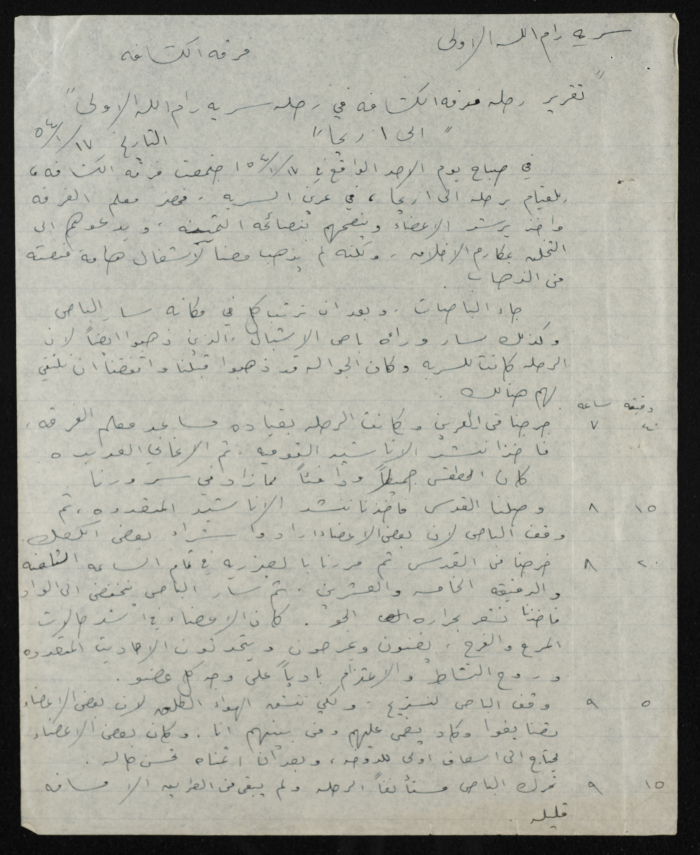 سريه رام الله الاولى
فرقة الكشافه
"تقرير رحله فرقه الكشافه في رحله سريه رام الله الاولى"
"الى اريحا" التاريخ ١٧/١/٥٤
في صباح يوم الاحد الواقع في ١٧/١/٥٤ اجتمعت فرقة الكشافه،
للقيام برحله الى اريحا، في عرين السريه. فحضر معلم الفرقه
واخذ يرشد الاعضاء وينصحهم بنصائحه الثمينه. ويدعوهم الى
التخلق بمكارم الاخلاق. ولكنه لم يذهب معنا لاشغال هامة منعته
من الذهاب.
جاء الباصات. وبعد ان ترتب كل في مكانه سار الباص
وكذلك سار وراءه باص الاشبال. الذين ذهبوا ايضاً لان
الرحله كانت للسريه وكان الجواله قد ذهبوا قبلنا واتفقنا ان نلتقي
بهم هنالك.
دقيقه ساعه
٤٠ ٧ خرجنا من العرين وكانت الرحله بقياده مساعد معلم الفرقه،
فاخذنا ننشد الاناشيد القوميه. ثم الاغاني العديده
كان الطقس جميلاً ودافئاً مما زاد في سرورنا
١٥ ٨ وصلنا القدس فاخذنا ننشد الاناشيد المتعدده، ثم
وقف الباص لان بعض الاعضاء ارادوا شراء بعض الكعك
٢٠ ٨ خرجنا من القدس ثم مررنا بالعيزريه في تمام الساعه الثامنه
والدقيقه الخامسه والعشرين. ثم سار الباص ينخفض الى الواد
فاخذنا نشعر بحراره الجو. كان الاعضاء في اشد حالات
المرح والفرح، يغنون ويمرحون ويتحدثون الاحاديث المتعدده
وروح النشاط والاعتزام بادياً على وجه كل عضو.
٥ ٩ وقف الباص لنستريح. ولكي ننشق الهواء الطلق لان بعض الاعضاء
تضايقوا وكاد يغمى عليهم ومن بينهم انا. وكان بعض الاعضاء
يحتاج الى اسعاف اولي للدوخه، وبعد ان ارتحناه تحسن حاله.
١٥ ٩ تحرك الباص مستأنفاً الرحله ولم يبقى من الطريق الا مسافه
قليله.